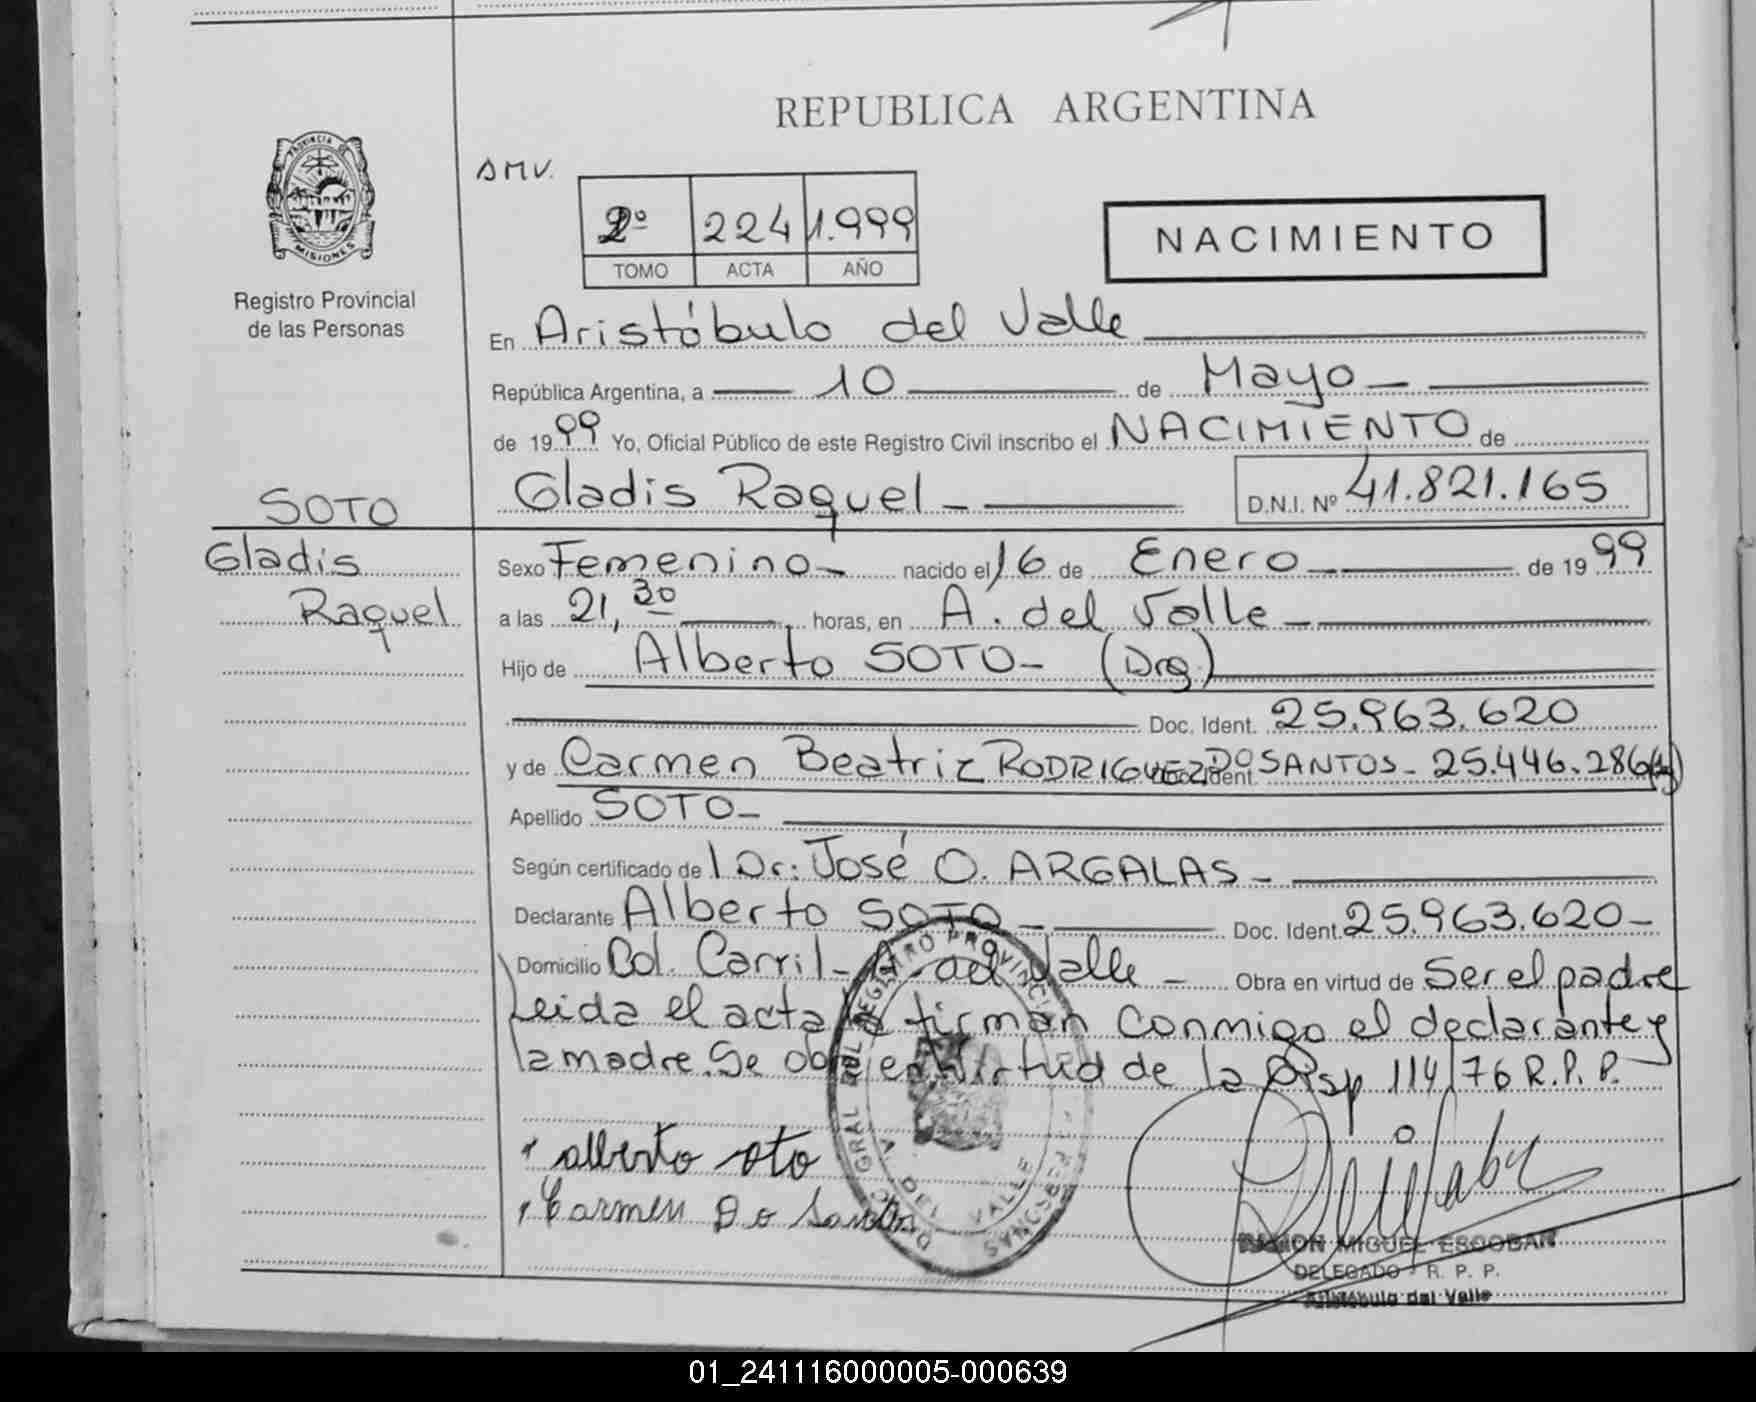 REPUBLICA ARGENTINA
PROVINCIA DE
MISIONES
Registro Provincial
de las Personas
AMV.
2º 224 1.999
TOMO ACTA AÑO
NACIMIENTO
En Aristóbulo del Valle
República Argentina, a 10 de Mayo
de 1999 Yo, Oficial Público de este Registro Civil inscribo el NACIMIENTO de
Gladis Raquel D.N.I. Nº 41.821.165
SOTO
Gladis
Raquel
Sexo Femenino nacido el 16 de Enero de 1999
a las 21,30 horas, en A. del Valle
Hijo de Alberto SOTO (Arg)
Doc. Ident. 25.963.620
y de Carmen Beatriz RODRIGUEZ DO SANTOS - 25.446.286
Apellido SOTO
Según certificado de l Dr: José O. ARGALAS
Declarante Alberto SOTO Doc. Ident. 25.963.620
Domicilio Col. Carril - A. del Valle Obra en virtud de Ser el padre
Leida el acta la firman conmigo el declarante y
la madre. Se obra en virtud de la Disp 114/76 R.P.P.
alberto oto
Carmen Do Santos
REGISTRO PROVINCIAL
PERSONAS
A DEL VALLE
RAMON MIGUEL ESCOBAR
DELEGADO R. P. P.
Aristóbulo del Valle
01_241116000005-000639